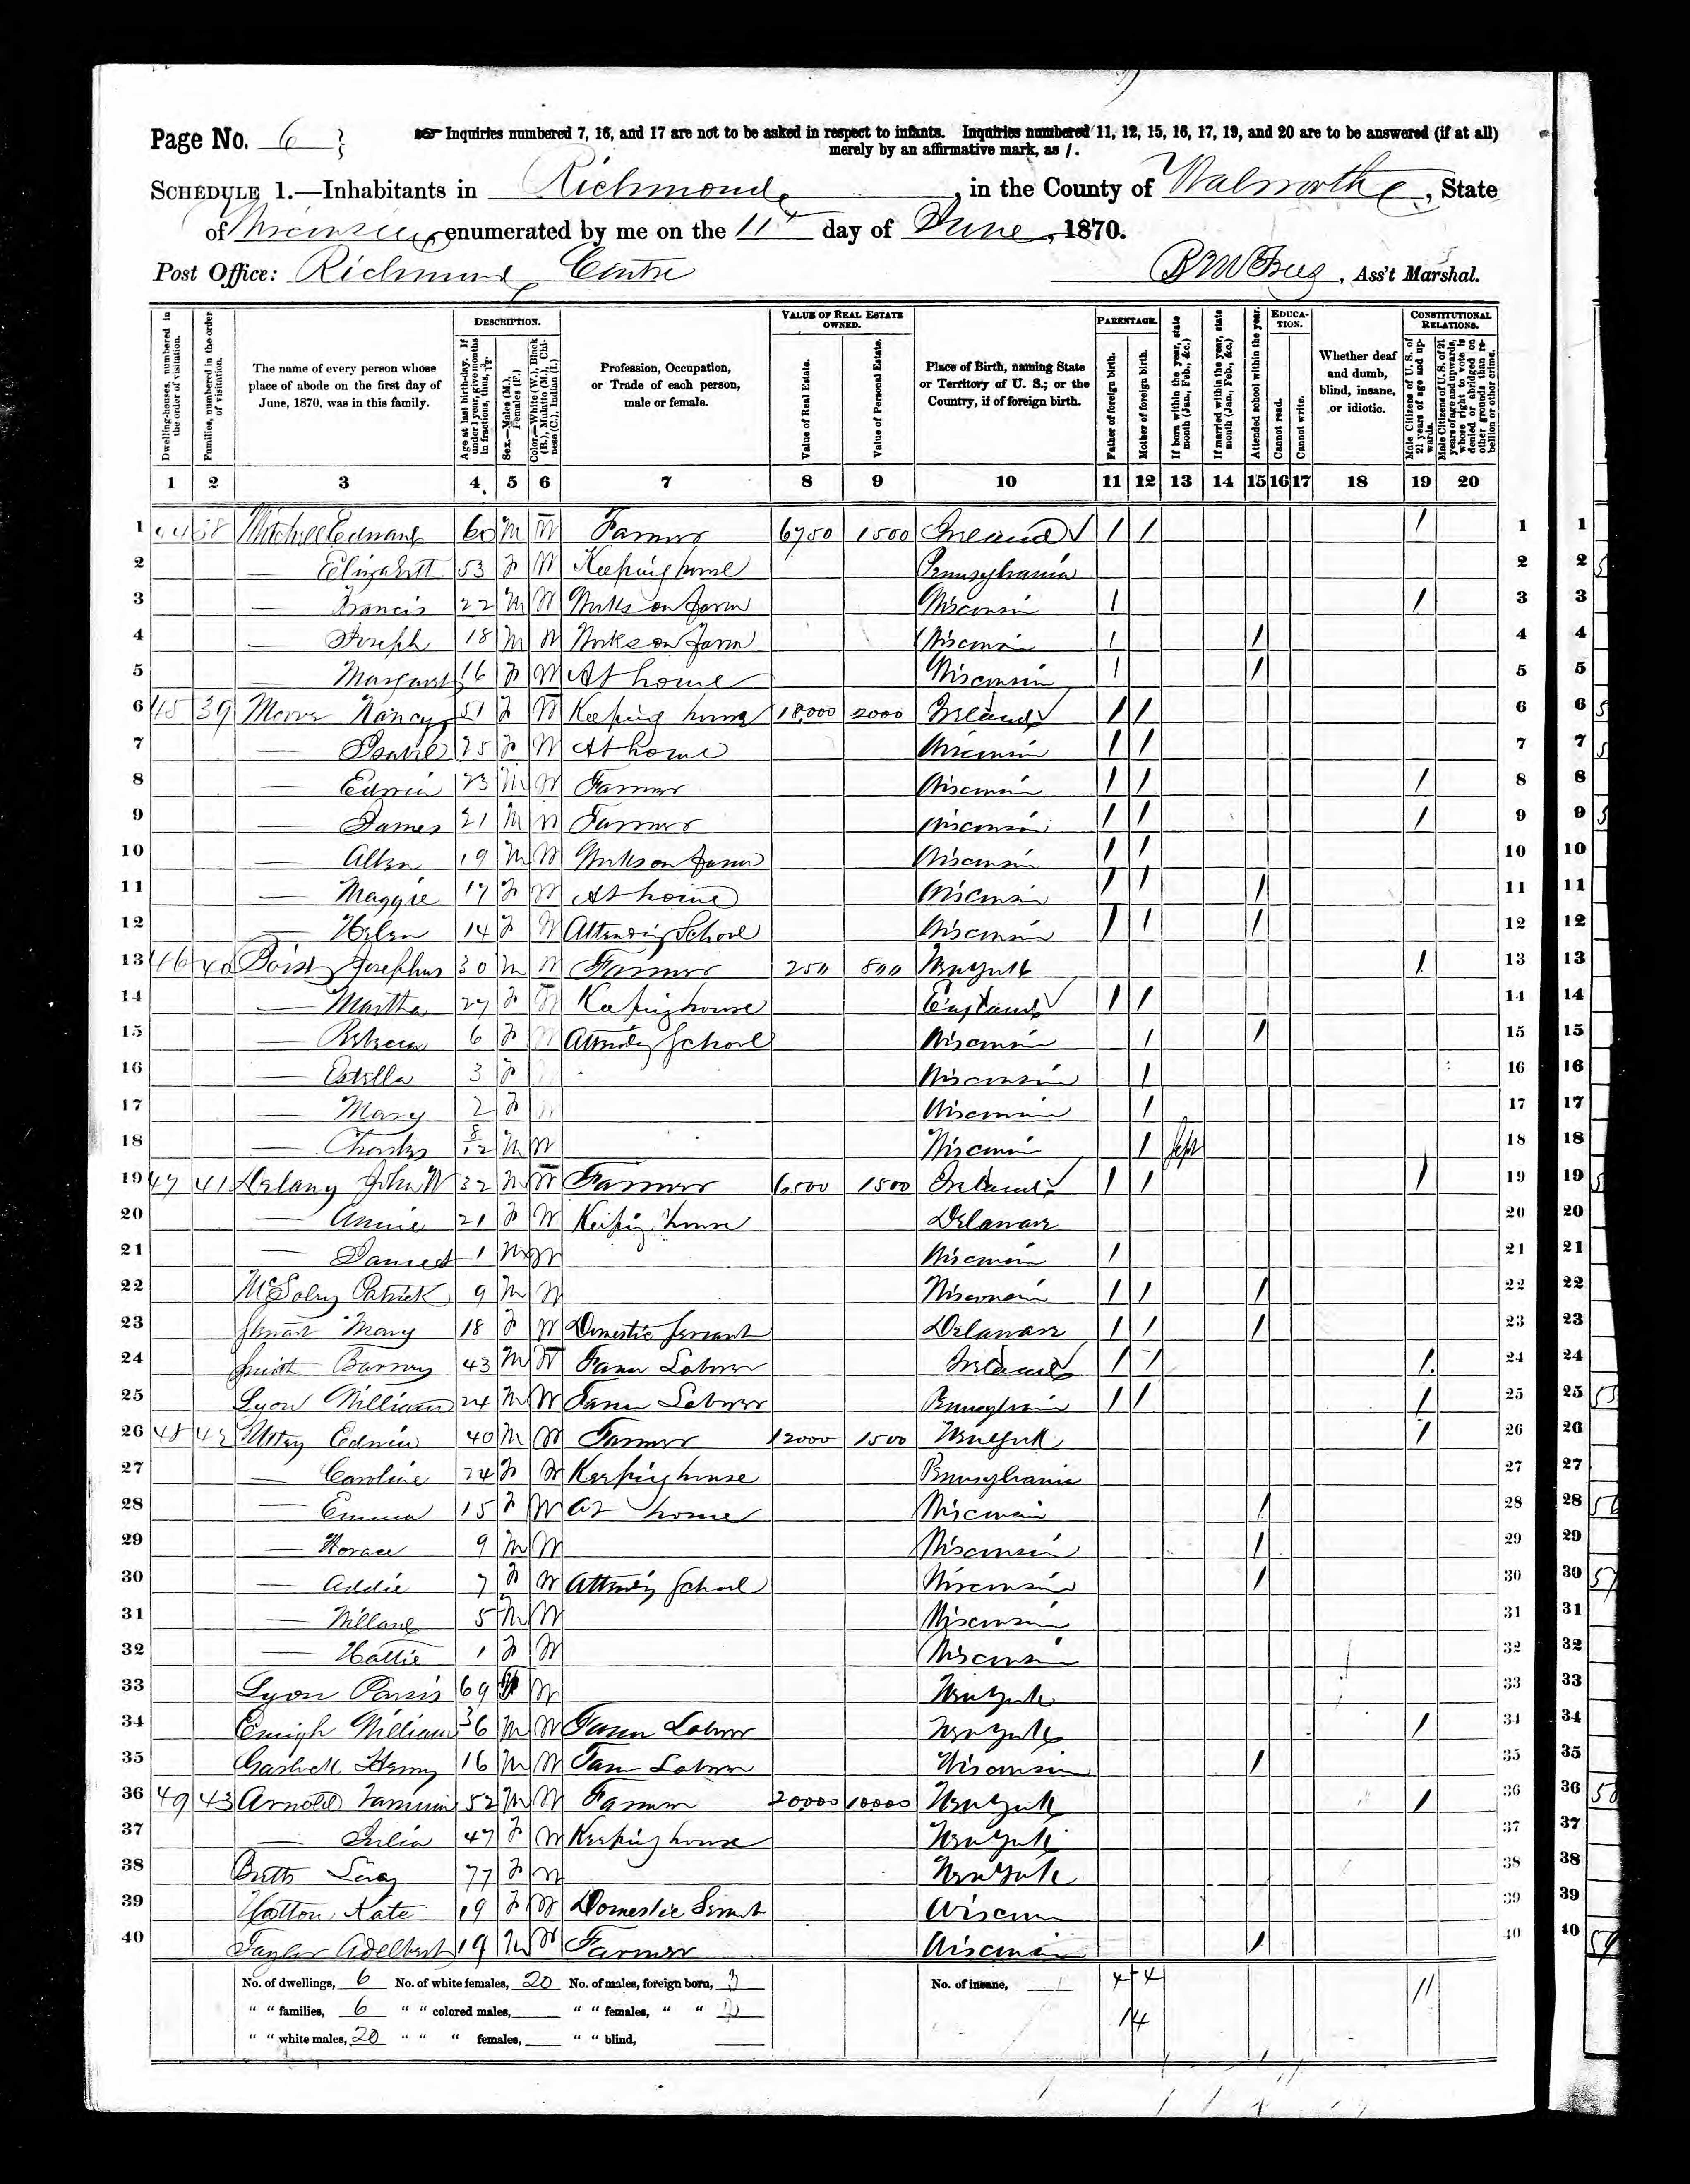 Page No. 6
Inquiries numbered 7, 16, and 17 are not to be asked in respect to infants. Inquiries numbered 11, 12, 15, 16, 17, 19, and 20 are to be answered (if at all)
merely by an affirmative mark, as /.
SCHEDULE 1.—Inhabitants in Richmond, in the County of Walworth, State
of Wisconsin, enumerated by me on the 11th day of June, 1870.
Post Office: Richmond Centre , Ass't Marshal.
Dwelling-houses, numbered in the order of visitation.
Families, numbered in the order of visitation.
The name of every person whose place of abode on the first day of June, 1870, was in this family.
DESCRIPTION.
Age at last birth-day. If under 1 year, give months in fractions, thus,
Sex.—Males (M.), Females (F.)
Color.—White (W.), Black (B.), Mulatto (M.), Chinese (C.), Indian (I.)
Profession, Occupation, or Trade of each person, male or female.
VALUE OF REAL ESTATE OWNED.
Value of Real Estate.
Value of Personal Estate.
Place of Birth, naming State or Territory of U. S.; or the Country, if of foreign birth.
PARENTAGE.
Father of foreign birth.
Mother of foreign birth.
If born within the year, state month (Jan., Feb., &c.)
If married within the year, state month (Jan., Feb., &c.)
Attended school within the year.
EDUCATION.
Cannot read.
Cannot write.
Whether deaf and dumb, blind, insane, or idiotic.
CONSTITUTIONAL RELATIONS.
Male Citizens of U. S. of 21 years of age and upwards.
Male Citizens of U. S. of 21 years of age and upwards, whose right to vote is denied or abridged on other grounds than rebellion or other crime.
1 2 3 4 5 6 7 8 9 10 11 12 13 14 15 16 17 18 19 20
1 44 38 Mitchell Edward 60 M W Farmer 6750 1500 Ireland / / / 1
2 — Elizabeth 53 F W Keeping house Pennsylvania 2
3 — Francis 22 M W Works on farm Wisconsin / / 3
4 — Joseph 18 M W Works on farm Wisconsin / / 4
5 — Margaret 16 F W At home Wisconsin / / 5
6 45 39 Nancy 51 F W Keeping house 18,000 2000 Ireland / / 6
7 — 25 F W At home Wisconsin / / 7
8 — Edwin 23 M W Farmer Wisconsin / / / 8
9 — James 21 M W Farmer Wisconsin / / / 9
10 — Allen 19 M W Works on farm Wisconsin / / 10
11 — Maggie 17 F W At home Wisconsin / / / 11
12 — Helen 14 F W Attending School Wisconsin / / / 12
13 46 40 Josephus 30 M W Farmer 250 800 New York / 13
14 — Martha 27 F W Keeping house England / / 14
15 — Rebecca 6 F W Attending School Wisconsin / / 15
16 — Estella 3 F Wisconsin / 16
17 — Mary 2 F W Wisconsin / 17
18 — Charles 8/12 M W Wisconsin / Sept 18
19 47 41 Delany John W 32 M W Farmer 6500 1500 Ireland / / / 19
20 — Annie 21 F W Keeping house Delaware 20
21 — 1 M W Wisconsin / 21
22 Patrick 9 M W Wisconsin / / / 22
23 Mary 18 F W Domestic Servant Delaware / / / 23
24 Smith Barney 43 M W Farm Laborer Ireland / / / 24
25 Lyon William 24 M W Farm Laborer Pennsylvania / / / 25
26 48 42 Utley Edwin 40 M W Farmer 12000 1500 New York / 26
27 — Caroline 24 F W Keeping house Pennsylvania 27
28 — Emma 15 F W At home Wisconsin / 28
29 — Horace 9 M W Wisconsin / 29
30 — Addie 7 F W Attending School Wisconsin / 30
31 — Willard 5 M W Wisconsin 31
32 — Hattie 1 F W Wisconsin 32
33 Lyon 69 W New York 33
34 William 36 M W Farm Laborer New York / 34
35 Henry 16 M W Farm Laborer Wisconsin / 35
36 49 43 Arnold 52 M W Farmer 20000 10000 New York / 36
37 — Julia 47 F W Keeping house New York 37
38 77 F W New York 38
39 Hatton Kate 19 F W Domestic Servant Wiscon 39
40 Taylor Adelbert 19 M W Farmer Wisconsin / 40
No. of dwellings, 6 No. of white females, 20 No. of males, foreign born, 3 No. of insane,
" " families, 6 " " colored males, " " females, " "
" " white males, 20 " " " females, " " blind,
14
11